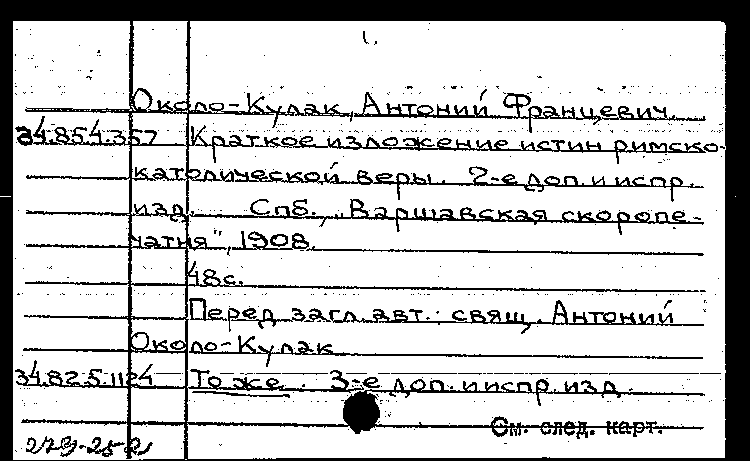 1.
Около-Кулак, Антоний Францевич.
34.854.357 Краткое изложение истин римско-
католической веры. 2-е доп. и испр.
изд. Спб., „Варшавская скоропе-
чатня", 1908.
48с.
Перед загл. авт.: свящ. Антоний
Около-Кулак
34.82.5.1124 То же. 3-е доп. и испр. изд.
См. след. карт.